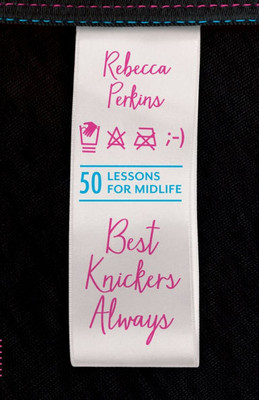 Rebecca
Perkins
;-)
50 LESSONS
FOR MIDLIFE
Best
Knickers
Always